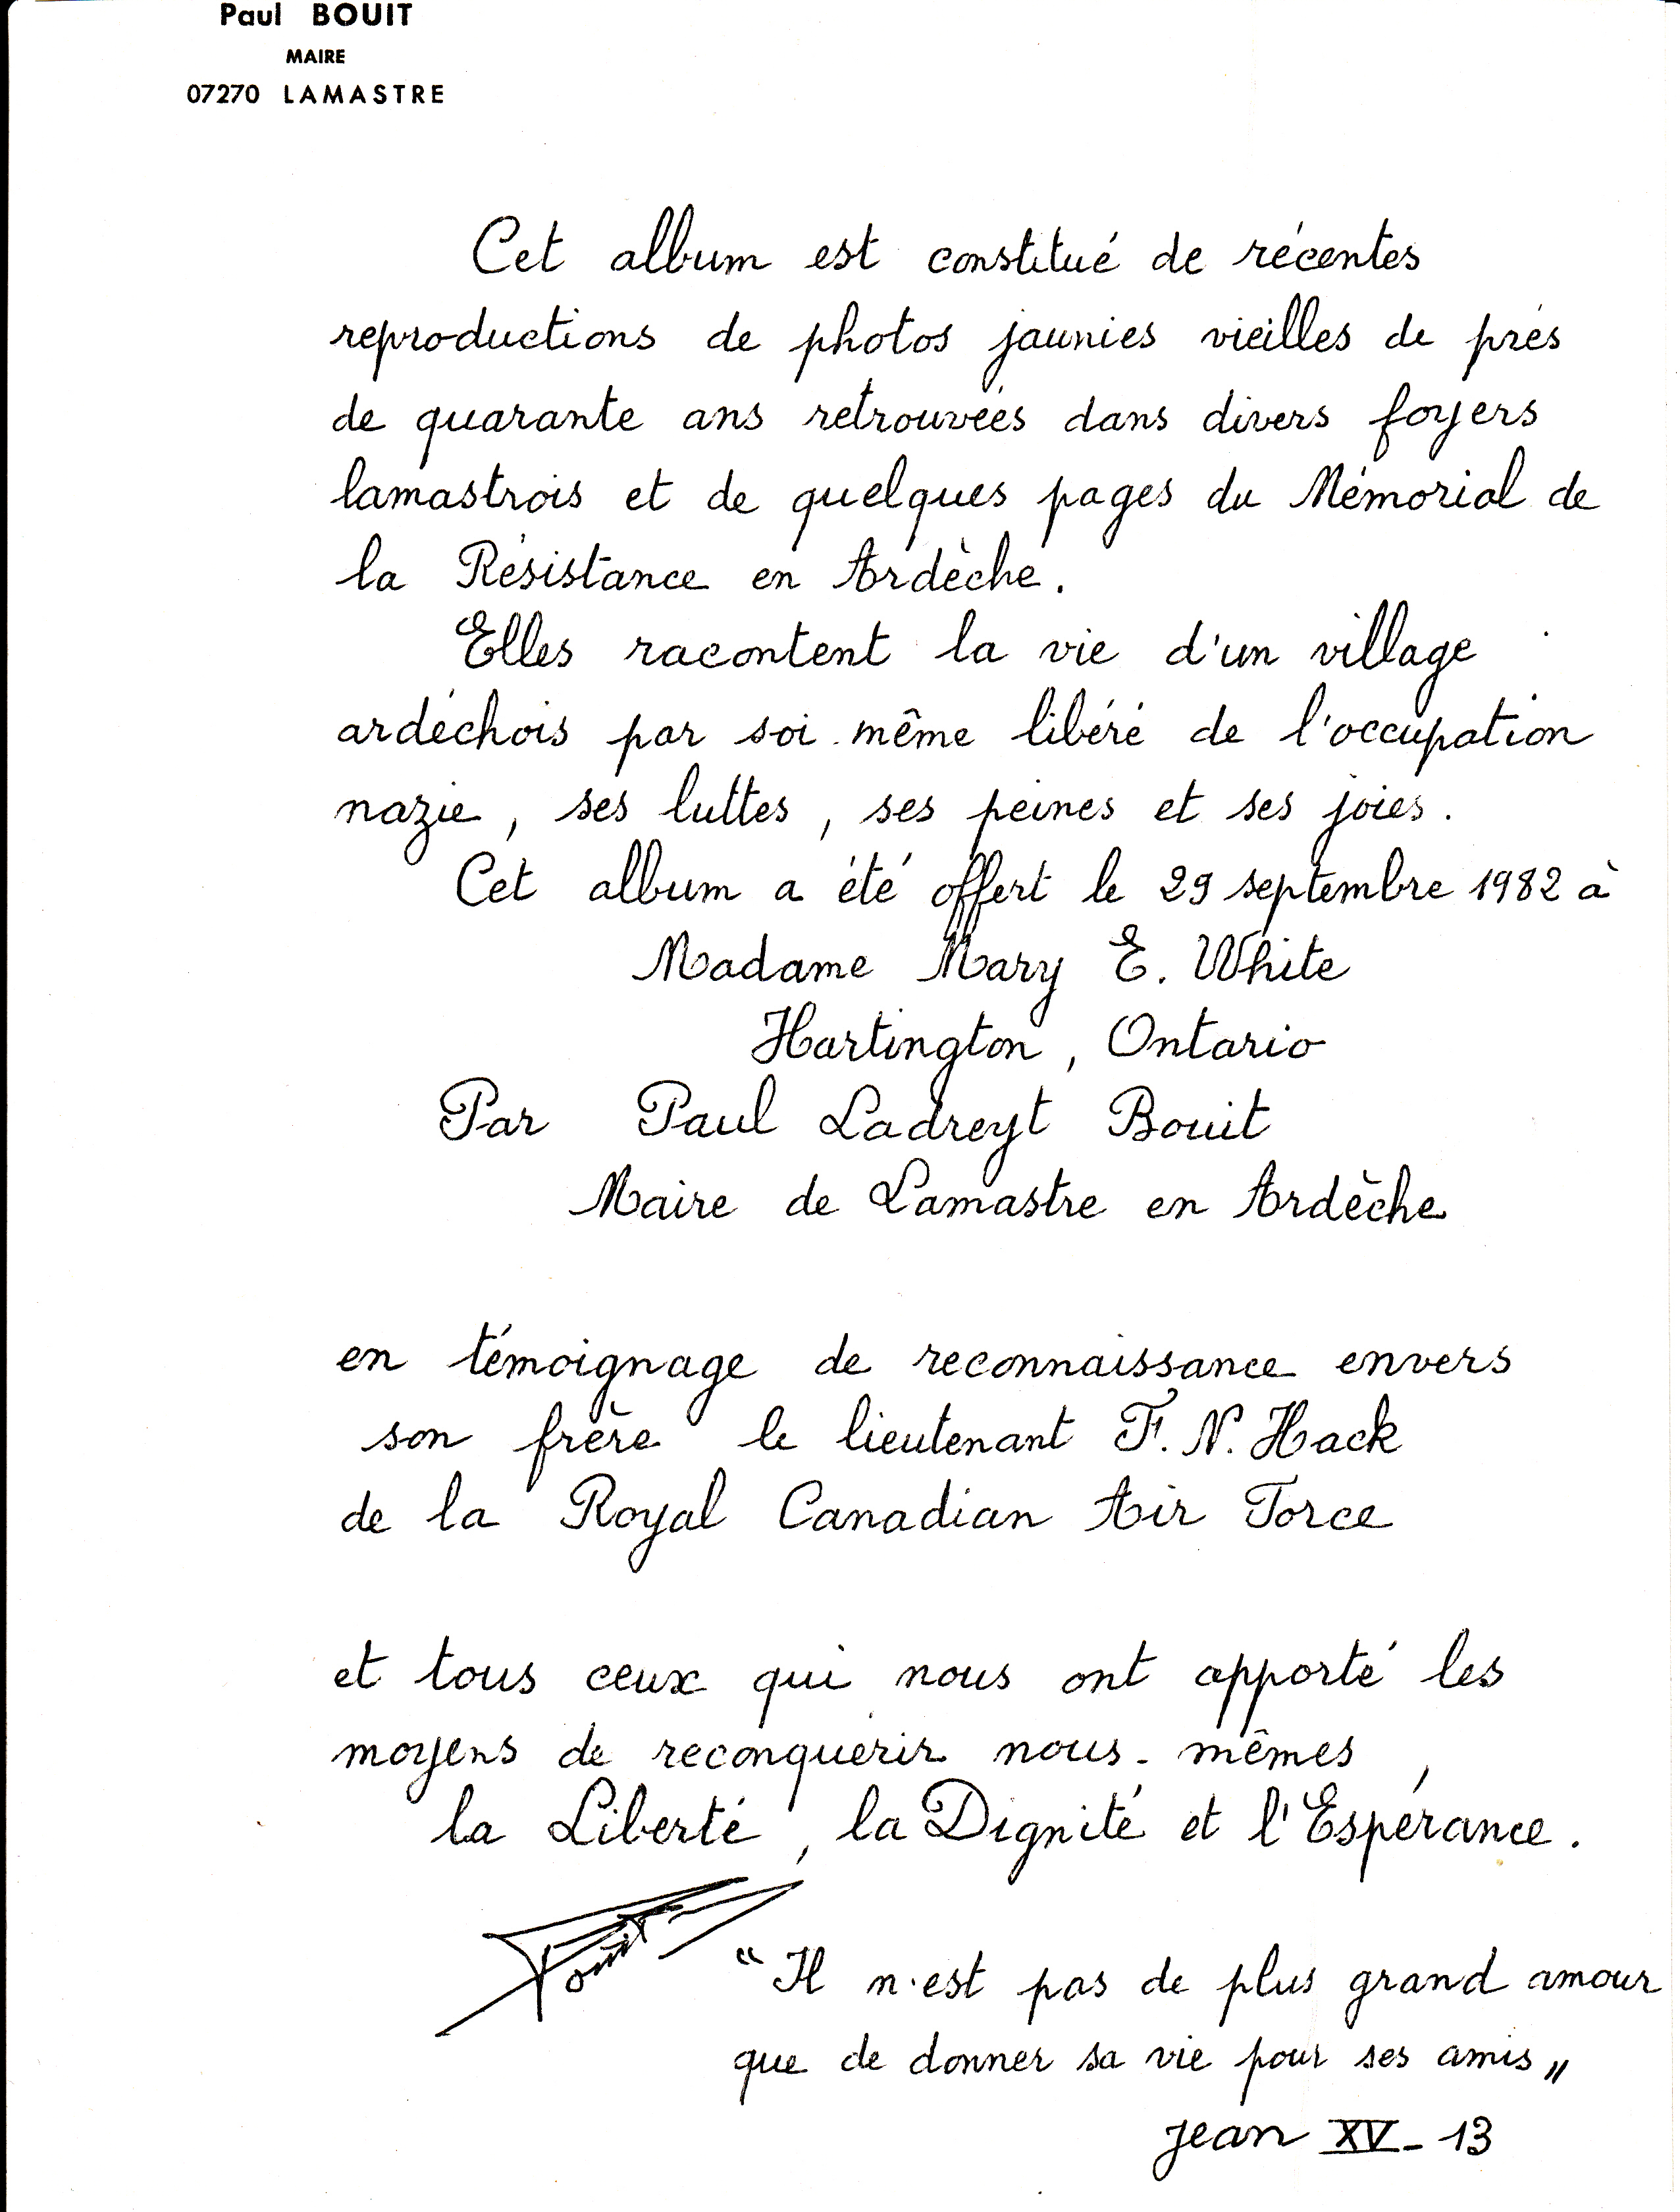 Paul BOUIT
MAIRE
07270 LAMASTRE
Cet album est constitué de récentes
reproductions de photos jaunies vieilles de près
de quarante ans retrouvées dans divers foyers
lamastrois et de quelques pages du Mémorial de
la Résistance en Ardèche.
Elles racontent la vie d'un village
ardéchois par soi-même libéré de l'occupation
nazie, ses luttes, ses peines et ses joies.
Cet album a été offert le 29 septembre 1982 à
Madame Mary E. White
Hartington, Ontario
Par Paul Ladreyt Bouit
Maire de Lamastre en Ardèche
en témoignage de reconnaissance envers
son frère le lieutenant F. N. Hack
de la Royal Canadian Air Force
et tous ceux qui nous ont apporté les
moyens de reconquérir nous-mêmes,
la Liberté, la Dignité et l'Espérance.
Bouit
"Il n'est pas de plus grand amour
que de donner sa vie pour ses amis"
Jean XV-13